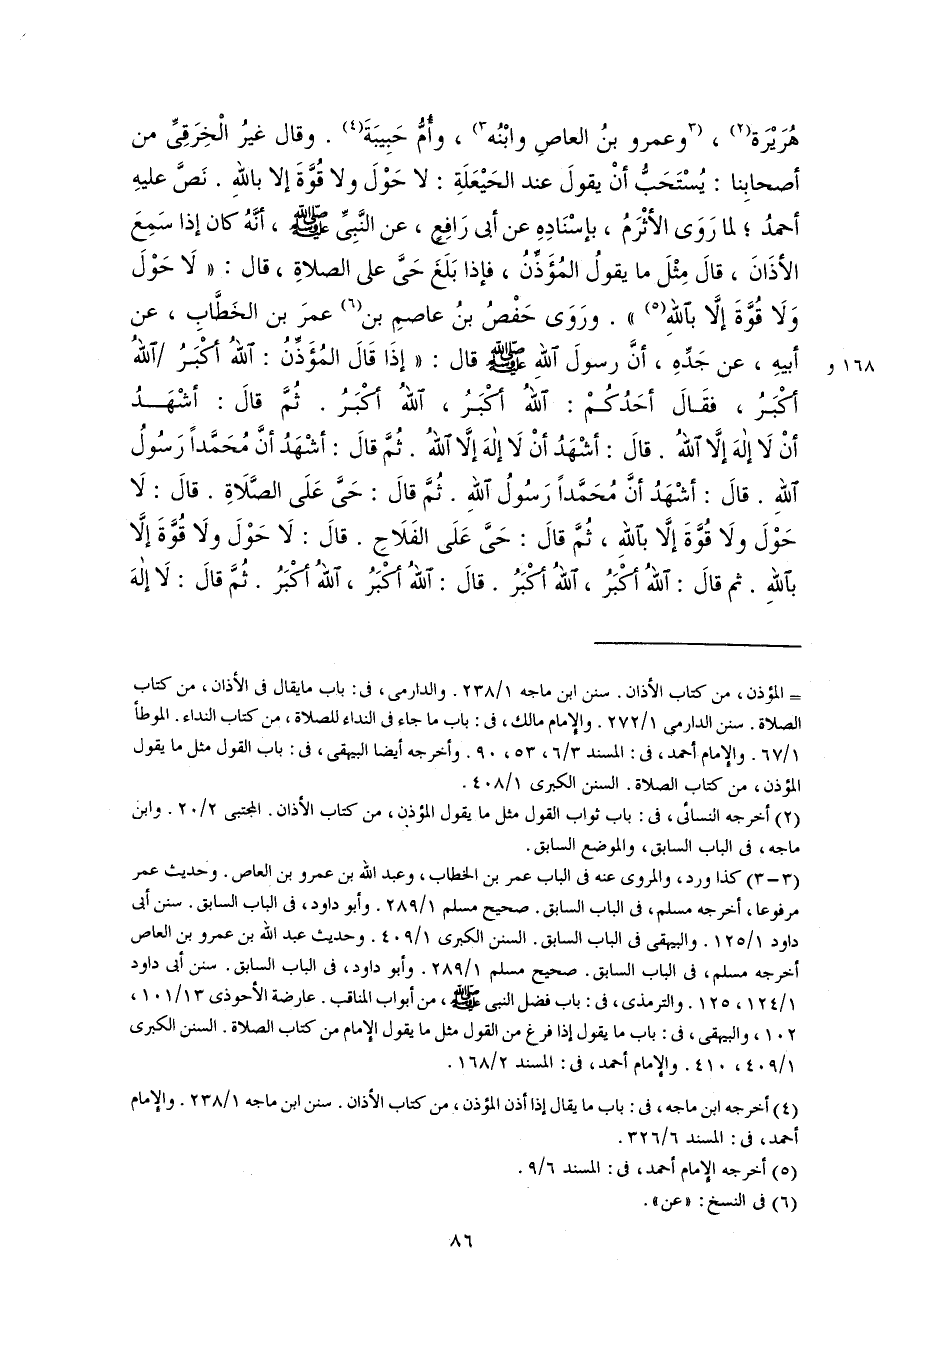 هُرَيْرَة(٢) ، (٣وعمرو بنُ العاصِ وابْنُه٣) ، وأُمُّ حَبِيبَةَ(٤) . وقال غيرُ الْخِرَقِىِّ من
أصحابِنا : يُسْتَحَبُّ أنْ يقولَ عند الحَيْعَلَةِ : لا حَوْلَ ولا قُوَّةَ إلا باللهِ . نَصَّ عليهِ
أحمدُ ؛ لما رَوَى الأثْرَمُ ، بإسْنادِهِ عن أبى رَافِعٍ ، عن النَّبِىِّ ﷺ ، أنَّهُ كان إذا سَمِعَ
الأذَانَ ، قالَ مِثْلَ ما يقولُ المُؤَذِّنُ ، فإذا بَلَغَ حَىَّ على الصلاةِ ، قال : « لَا حَوْلَ
وَلَا قُوَّةَ إلَّا بِٱللهِ(٥) » . ورَوَى حَفْصُ بنُ عاصِمِ بن(٦) عمرَ بن الخَطَّابِ ، عن
أبيهِ ، عن جَدِّهِ ، أنَّ رسولَ ٱللهِ ﷺ قال : « إذَا قَالَ المُؤَذِّنُ : ٱللهُ أكْبَرُ /ٱللهُ
١٦٨ و
أكْبَرُ ، فقَالَ أحَدُكُمْ : ٱللهُ أكْبَرُ ، ٱللهُ أكْبَرُ . ثُمَّ قالَ : أشْهَدُ
أنْ لَا إلٰهَ إلَّا ٱللهُ . قالَ : أشْهَدُ أنْ لَا إلٰهَ إلَّا ٱللهُ . ثُمَّ قالَ : أشْهَدُ أنَّ مُحَمَّداً رَسُولُ
ٱللهِ . قالَ : أشْهَدُ أنَّ مُحَمَّداً رَسُولُ ٱللهِ . ثُمَّ قالَ : حَىَّ عَلَى الصَّلَاةِ . قالَ : لَا
حَوْلَ ولَا قُوَّةَ إلَّا بِٱللهِ ، ثُمَّ قالَ : حَىَّ عَلَى الفَلَاحِ . قالَ : لَا حَوْلَ ولَا قُوَّةَ إلَّا
بِٱللهِ . ثم قالَ : ٱللهُ أكْبَرُ ، ٱللهُ أكْبَرُ . قالَ : ٱللهُ أكْبَرُ ، ٱللهُ أكْبَرُ . ثُمَّ قالَ : لَا إلٰهَ
= المؤذن ، من كتاب الأذان . سنن ابن ماجه ١/ ٢٣٨ . والدارمى ، فى : باب مايقال فى الأذان ، من كتاب
الصلاة . سنن الدارمى ١/ ٢٧٢ . والإمام مالك ، فى : باب ما جاء فى النداء للصلاة ، من كتاب النداء . الموطأ
١/ ٦٧ . والإمام أحمد ، فى : المسند ٣/ ٦ ، ٥٣ ، ٩٠ . وأخرجه أيضا البيهقى ، فى : باب القول مثل ما يقول
المؤذن ، من كتاب الصلاة . السنن الكبرى ١/ ٤٠٨ .
(٢) أخرجه النسائى ، فى : باب ثواب القول مثل ما يقول المؤذن ، من كتاب الأذان . المجتبى ٢/ ٢٠ . وابن
ماجه ، فى الباب السابق ، والموضع السابق .
(٣-٣) كذا ورد ، والمروى عنه فى الباب عمر بن الخطاب ، وعبد الله بن عمرو بن العاص . وحديث عمر
مرفوعا ، أخرجه مسلم ، فى الباب السابق . صحيح مسلم ١/ ٢٨٩ . وأبو داود ، فى الباب السابق . سنن أبى
داود ١/ ١٢٥ . والبيهقى فى الباب السابق . السنن الكبرى ١/ ٤٠٩ . وحديث عبد الله بن عمرو بن العاص
أخرجه مسلم ، فى الباب السابق . صحيح مسلم ١/ ٢٨٩ . وأبو داود ، فى الباب السابق . سنن أبى داود
١/ ١٢٤ ، ١٢٥ . والترمذى ، فى : باب فضل النبى ﷺ ، من أبواب المناقب . عارضة الأحوذى ١٣/ ١٠١ ،
١٠٢ ، والبيهقى ، فى : باب ما يقول إذا فرغ من القول مثل ما يقول الإمام من كتاب الصلاة . السنن الكبرى
١/ ٤٠٩ ، ٤١٠ . والإمام أحمد ، فى : المسند ٢/ ١٦٨ .
(٤) أخرجه ابن ماجه ، فى : باب ما يقال إذا أذن المؤذن ، من كتاب الأذان . سنن ابن ماجه ١/ ٢٣٨ . والإمام
أحمد ، فى : المسند ٦/ ٣٢٦ .
(٥) أخرجه الإمام أحمد ، فى : المسند ٦/ ٩ .
(٦) فى النسخ : «عن» .
٨٦